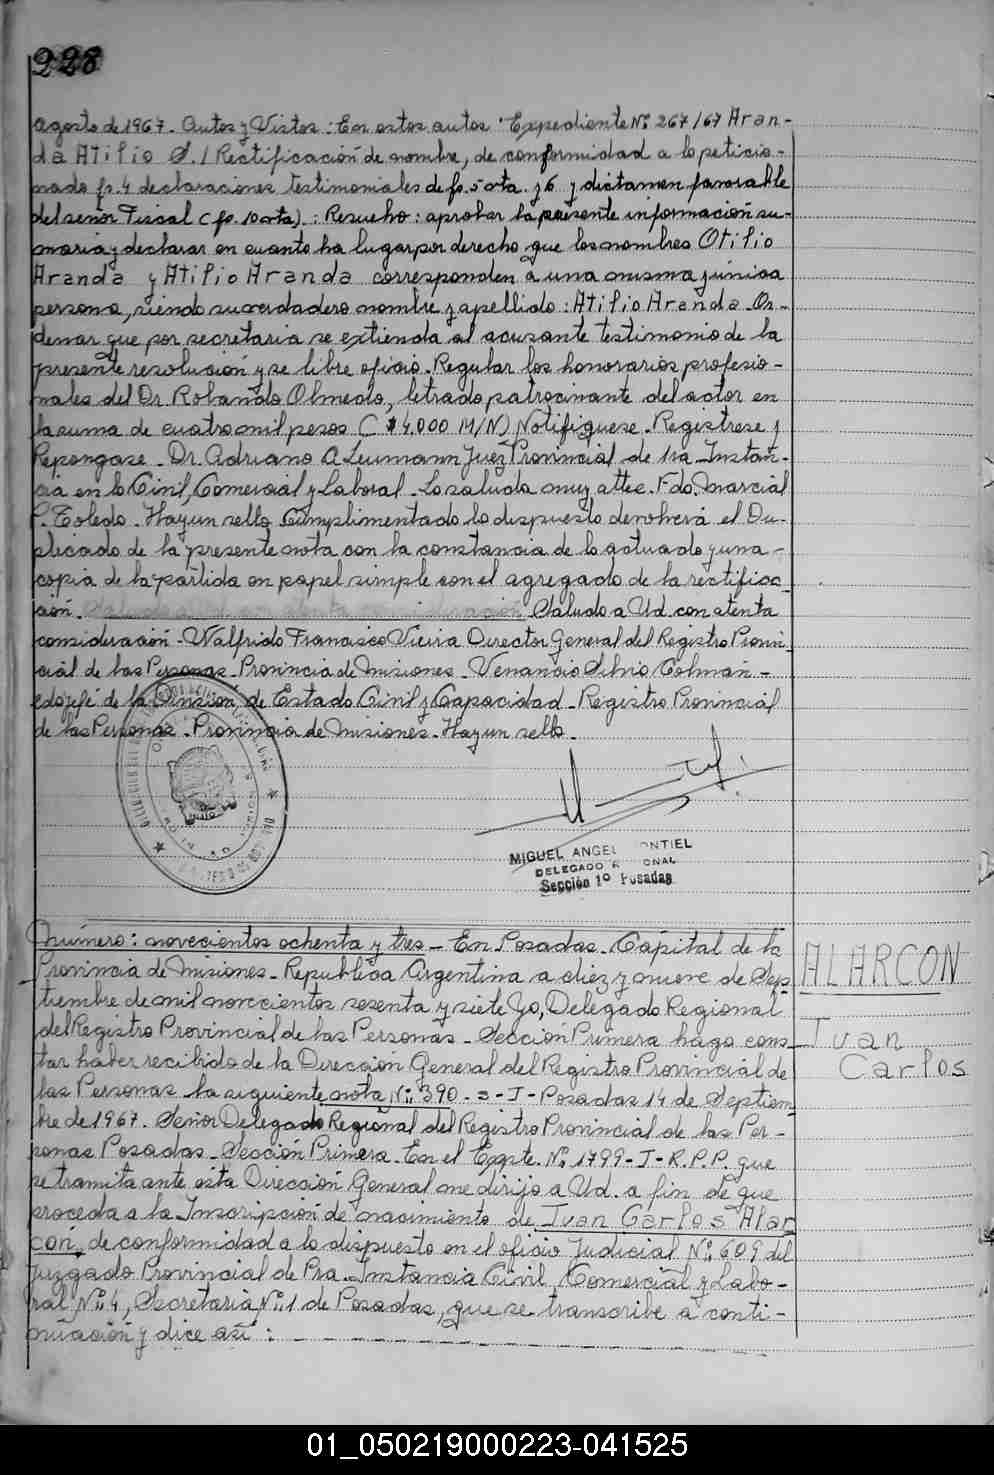 228
agosto de 1967. Autos y Vistos: En estos autos "Expediente Nº 267/67 Aran-
da Atilio S./Rectificación de nombre, de conformidad a lo peticio-
nado fs. 4 declaraciones testimoniales de fs. 5 vta. y 6 y dictamen favorable
del señor Fiscal (fs. 10 vta).: Resuelvo: aprobar la presente información su-
maria y declarar en cuanto ha lugar por derecho que los nombres Otilio
Aranda y Atilio Aranda corresponden a una misma y única
persona, siendo su verdadero nombre y apellido: Atilio Aranda. Or-
denar que por secretaria se extienda al acusante testimonio de la
presente resolución y se libre oficio. Regular los honorarios profesio-
nales del Dr. Rolando Olmedo, letrado patrocinante del actor en
la suma de cuatro mil pesos ($4.000 M/N) Notifiquese. Registrese y
Repongase. Dr. Adriano A. Leumann Juez Provincial de 1ra Instan-
cia en lo Civil, Comercial y Laboral. Lo saluda muy atte. Fdo. Marcial
Toledo. Hay un sello. Cumplimentado lo dispuesto devolverá el Du-
plicado de la presente nota con la constancia de lo actuado y una
copia de la partida en papel simple con el agregado de la rectificac
ión. Saludo a Ud. con atenta consideración Saludo a Ud. con atenta
consideración - Walfrido Francisco Vieira Director General del Registro Provin-
cial de las Personas. Provincia de Misiones. Venancio Silvio Colman -
Jefe de la Division de Estado Civil y Capacidad - Registro Provincial
de las Personas - Provincia de Misiones. Hay un sello.
MIGUEL ANGEL ONTIEL
DELEGADO R ONAL
Sección 1º Posadas
Número: novecientos ochenta y tres - En Posadas. Capital de la
Provincia de Misiones - Republica Argentina a diez y nueve de Sep
tiembre de mil novecientos sesenta y siete Yo, Delegado Regional
del Registro Provincial de las Personas - Sección Primera hago cons-
tar haber recibido de la Dirección General del Registro Provincial de
las Personas la siguiente nota Nº: 390 - = - I - Posadas 14 de Septiem
bre de 1967. Señor Delegado Regional del Registro Provincial de las Per-
sonas Posadas - Sección Primera. En el Expte. Nº 1799-I-R.P.P. que
se tramita ante esta Dirección General me dirijo a Ud. a fin de que
proceda a la Inscripción de nacimiento de Ivan Carlos Alar
con, de conformidad a lo dispuesto en el oficio Judicial Nº: 609 del
Juzgado Provincial de Pra. Instancia Civil, Comercial y Labo-
ral Nº: 4, Secretaria Nº: 1 de Posadas, que se transcribe a conti-
nuación y dice así:
ALARCON
Ivan
Carlos
01_050219000223-041525